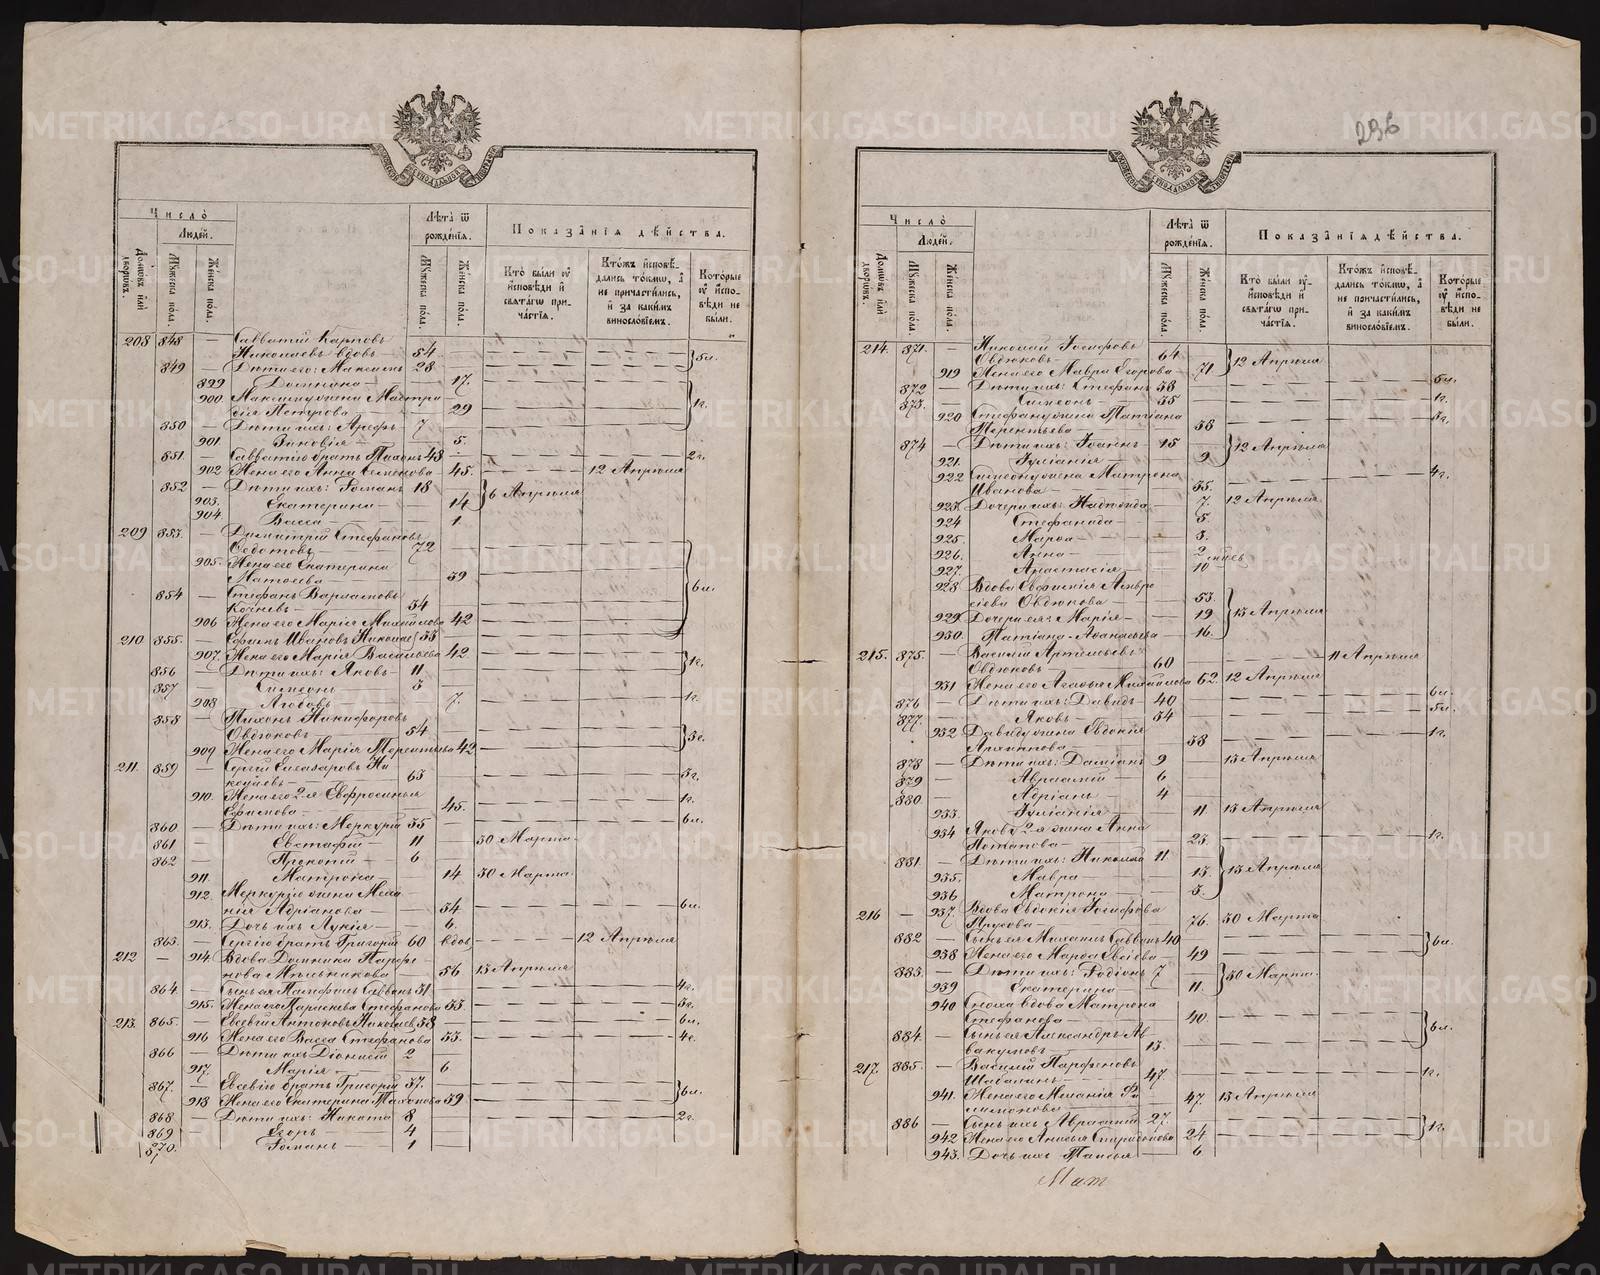 296
Число
Людей.
Домовъ или дворовъ.
Мужеска пола.
Женска пола.
Лѣта ѿ рожденія.
Мужеска пола.
Женска пола.
Показанія дѣйства.
Кто были у исповѣди и святаго причастія.
Ктожъ исповѣдались токмо, а не причастились, и за какимъ винословіемъ.
Которые у исповѣди не были.
208 848 — Савватій Карповъ
Николаевъ вдовъ — 54 5л.
849 — Дѣти его: Максимъ 28
899 Домника — 17.
900 Максиму жена Настасія Петрова — 29 1г.
850 — Дѣти ихъ: Арефъ 7
901. Зиновія — 5.
851. — Савватію братъ Тихонъ 43 2г.
902 Жена его Анна Семенова — 45. 12 Апрѣля
852 — Дѣти ихъ: Романъ 18
903. Екатерина — 14 6 Апрѣля
904. Васса — 1
209 853. — Димитрій Стефановъ
Федотовъ 72
905. Жена его Екатерина
Матвѣева — 59
854 — Стефанъ Варлаамовъ
Кочневъ — 54 6л.
906 Жена его Марія Михайлова 42
210 855. — Ефимъ Ивановъ Николаев 53
907. Жена его Марія Васильева 42. 1г.
856 — Дѣти ихъ: Яковъ 11
857 — Симеонъ 3
908 Любовь 7. 1г.
858 — Тихонъ Никифоровъ
Овдюковъ 54 3г.
909 Жена его Марія Терентьева 42
211. 859 — Сергій Елеазаровъ Никонповъ — 63 3г.
910. Жена его 2-я Евфросинья
Ефимова — 45. 1г.
860 — Дѣти ихъ: Меркурій 35 6л.
861 Евстафій — 11 30 Марта
862 — Прокопій — 6
911. Матрона — 14. 30 Марта
912. Меркурію жена Мелания Адріанова — 34 6л.
913. Дочь ихъ Лукія — 6.
863. — Сергію братъ Григорій 60 вдов. 12 Апрѣля
212 — 914 Вдова Домника Парфенова Мѣльникова — 56 13 Апрѣля
864. — Сынъ ея Памфилъ Саввинъ 31 4г.
915. Жена его Параскева Стефанова 33. 3г.
213. 865. — Евсевій Антоновъ Николаев 38 — 6л.
916 Жена его Васса Стефанова 33. 4г.
866 — Дѣти ихъ Діонисій 2
917. Марія — 6
867. — Евсевію братъ Григорій 37.
918 Жена его Екатерина Тихонова 39 6л.
868 — Дѣти ихъ: Никита 8 2г.
869 Егоръ 4
870. Романъ — 1
Число
Людей.
Домовъ или дворовъ.
Мужеска пола.
Женска пола.
Лѣта ѿ рожденія.
Мужеска пола.
Женска пола.
Показанія дѣйства.
Кто были у исповѣди и святаго причастія.
Ктожъ исповѣдались токмо, а не причастились, и за какимъ винословіемъ.
Которые у исповѣди не были.
214. 871. — Николай Іосифовъ
Овдюковъ — 64 12 Апрѣля
919 Жена его Мавра Егорова — 71
872 — Дѣти ихъ: Стефанъ 38 6л.
873. — Симеонъ — 35 1г.
920 Стефану жена Татіана 3г.
Терентьева 38
874 — Дѣти ихъ: Іоаннъ — 15 12 Апрѣля
921. Іуліанія — 9
922 Симеону жена Матрона 4г.
Иванова — 35.
923. Дочери ихъ: Надежда 7. 12 Апрѣля
924 Стефанида — 5.
925. Марѳа — 3.
926. Анна — 2
927. Анастасія — 10
928. Вдова Евфимія Алексіева Овдюкова — 53.
929. Дочери ея: Марія — 19 13 Апрѣля
930. Татіана Аѳанасьева — 16.
215. 875. — Василій Артемьевъ 11 Апрѣля
Овдюковъ 60
931 Жена его Агаѳья Михайлова 62. 12 Апрѣля
876 — Дѣти ихъ: Давидъ 40 6л.
877. — Яковъ — 34 5л.
932 Давиду жена Евдокія 1г.
38
878 — Дѣти ихъ: Даміанъ 9 13 Апрѣля
879 — Авраамій 6
880. — Адріанъ — 4
933. Іуліанія — 11. 13 Апрѣля
934 Якову 2-я жена Анна
Потапова — 23. 1г.
881. — Дѣти ихъ: Николай 11
935. Мавра — 13. 13 Апрѣля
936 Матрона — 3.
216 — 937. Вдова Евдокія Іосифова
Трусова 76. 30 Марта
882 — Сынъ ея Михаилъ Саввинъ 40
938 Жена его Марѳа Евсіева — 49 6л.
883. — Дѣти ихъ: Родіонъ 7
939 Екатерина — 11. 30 Марта
940 Сноха вдова Матрона
Стефанова — 40.
884. — Сынъ ея Александръ Аввакумовъ 13. 6л.
217. 885. — Василій Парфеновъ
Шабалинъ 47. 1г.
941. Жена его Меланія Филимонова — 47. 13 Апрѣля
886 — Сынъ ихъ Авраамій 27.
942 Жена его Анисья Спиридонова 24 1г.
943. Дочь ихъ Таисья — 6
Мат
METRIKI.GASO-URAL.RU